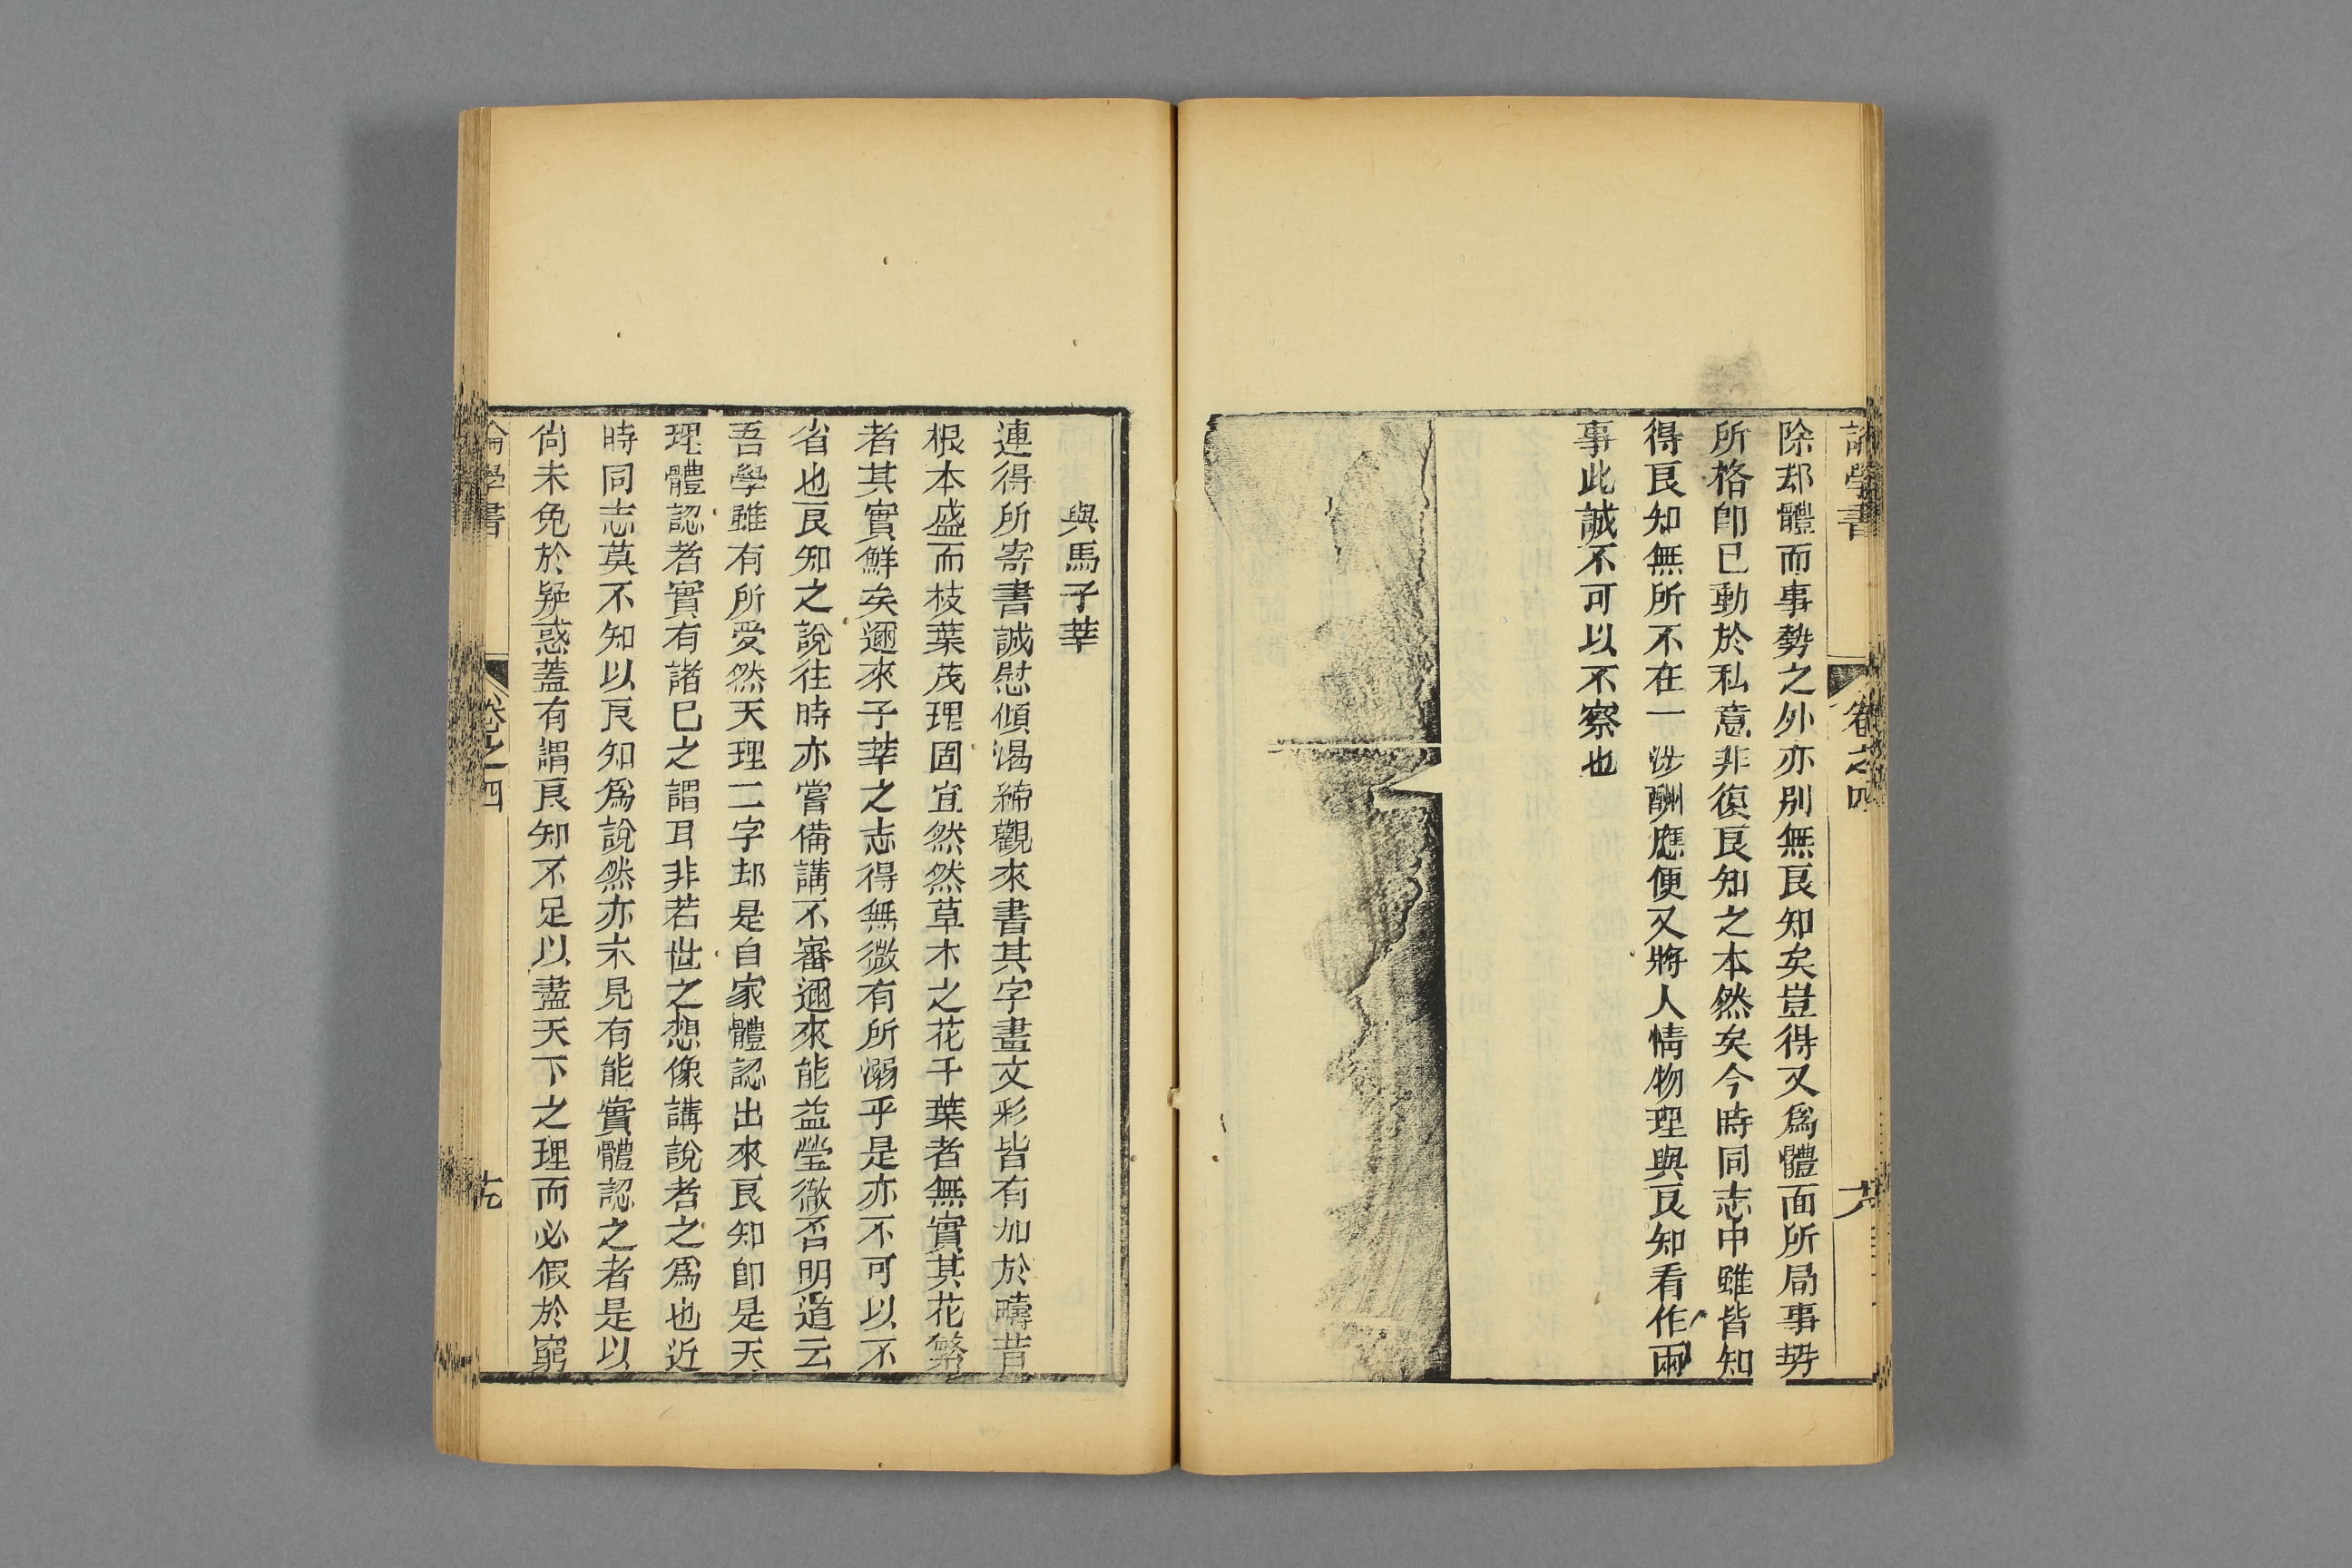 論學書
卷之四
除却體而事勢之外亦別無良知矣豈得又爲體面所局事勢
所格卽已動於私意非復良知之本然矣今時同志中雖皆知
得良知無所不在一涉酬應便又將人情物理與良知看作兩
事此誠不可以不察也
與馬子莘
連得所寄書誠慰傾渴締觀來書其字畫文彩皆有加於疇昔
根本盛而枝葉茂理固宜然然草木之花千葉者無實其花繁
者其實鮮矣邇來子莘之志得無微有所溺乎是亦不可以不
省也良知之說往時亦嘗備講不審邇來能益瑩徹否明道云
吾學雖有所受然天理二字却是自家體認出來良知卽是天
理體認者實有諸已之謂耳非若世之想像講說者之爲也近
時同志莫不知以良知爲說然亦未見有能實體認之者是以
尙未免於疑惑蓋有謂良知不足以盡天下之理而必假於窮
論學書
卷之四